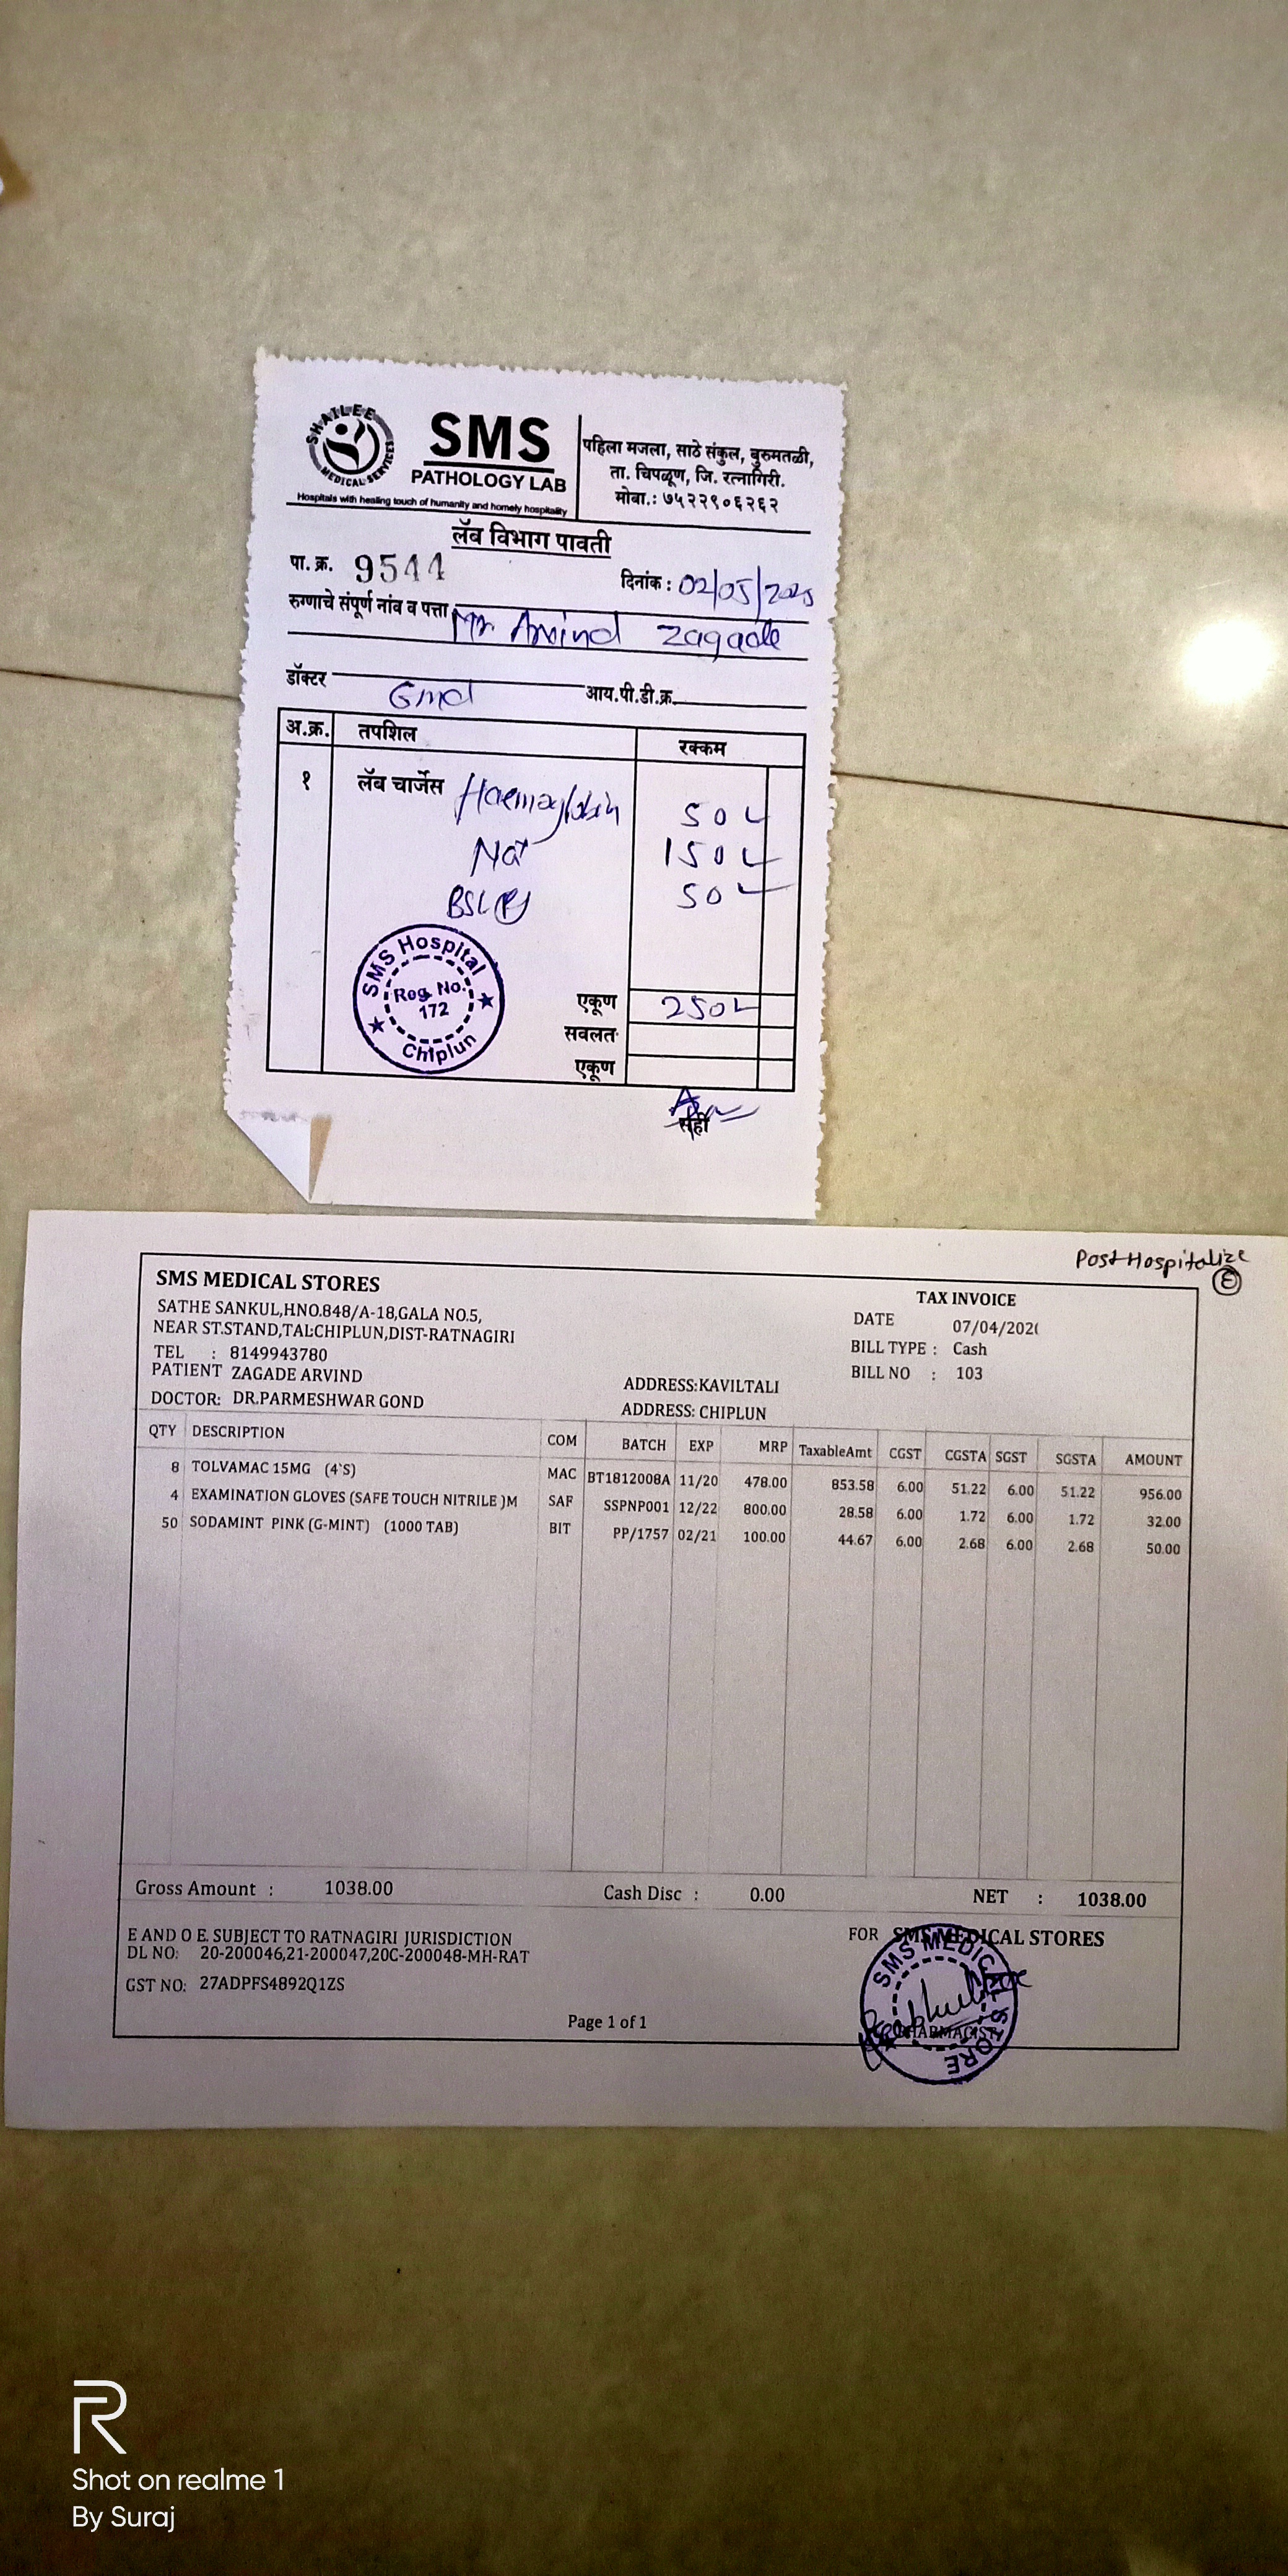 SHAILEE
MEDICAL SERVICES
SMS
PATHOLOGY LAB
Hospitals with healing touch of humanity and homely hospitality
पहिला मजला, साठे संकुल, बुरुमतळी,
ता. चिपळूण, जि. रत्नागिरी.
मोबा.: ७५२२९०६२६२
लॅब विभाग पावती
पा. क्र. 9544 दिनांक : 02/05/
रुग्णाचे संपूर्ण नांव व पत्ता Mr Arvind Zagade
डॉक्टर आय.पी.डी.क्र.
अ.क्र. तपशिल रक्कम
१ लॅब चार्जेस Haemoglobin 50
150
BSL 50
SMS Hospital
Reg. No.
172
Chiplun
एकूण 250
सवलत
एकूण
सही
Post Hospitalize
E
SMS MEDICAL STORES
SATHE SANKUL,HNO.848/A-18,GALA NO.5,
NEAR ST.STAND,TAL:CHIPLUN,DIST-RATNAGIRI
TEL : 8149943780
PATIENT ZAGADE ARVIND
DOCTOR: DR.PARMESHWAR GOND
ADDRESS:KAVILTALI
ADDRESS: CHIPLUN
TAX INVOICE
DATE 07/04/202
BILL TYPE : Cash
BILL NO : 103
QTY DESCRIPTION COM BATCH EXP MRP TaxableAmt CGST CGSTA SGST SGSTA AMOUNT
8 TOLVAMAC 15MG (4`S) MAC BT1812008A 11/20 478.00 853.58 6.00 51.22 6.00 51.22 956.00
4 EXAMINATION GLOVES (SAFE TOUCH NITRILE )M SAF SSPNP001 12/22 800.00 28.58 6.00 1.72 6.00 1.72 32.00
50 SODAMINT PINK (G-MINT) (1000 TAB) BIT PP/1757 02/21 100.00 44.67 6.00 2.68 6.00 2.68 50.00
Gross Amount : 1038.00 Cash Disc : 0.00 NET : 1038.00
E AND O E. SUBJECT TO RATNAGIRI JURISDICTION
DL NO: 20-200046,21-200047,20C-200048-MH-RAT
GST NO: 27ADPFS4892Q1ZS
FOR SMS MEDICAL STORES
SMS MEDICAL STORE
PHARMACIST
Page 1 of 1
R
Shot on realme 1
By Suraj